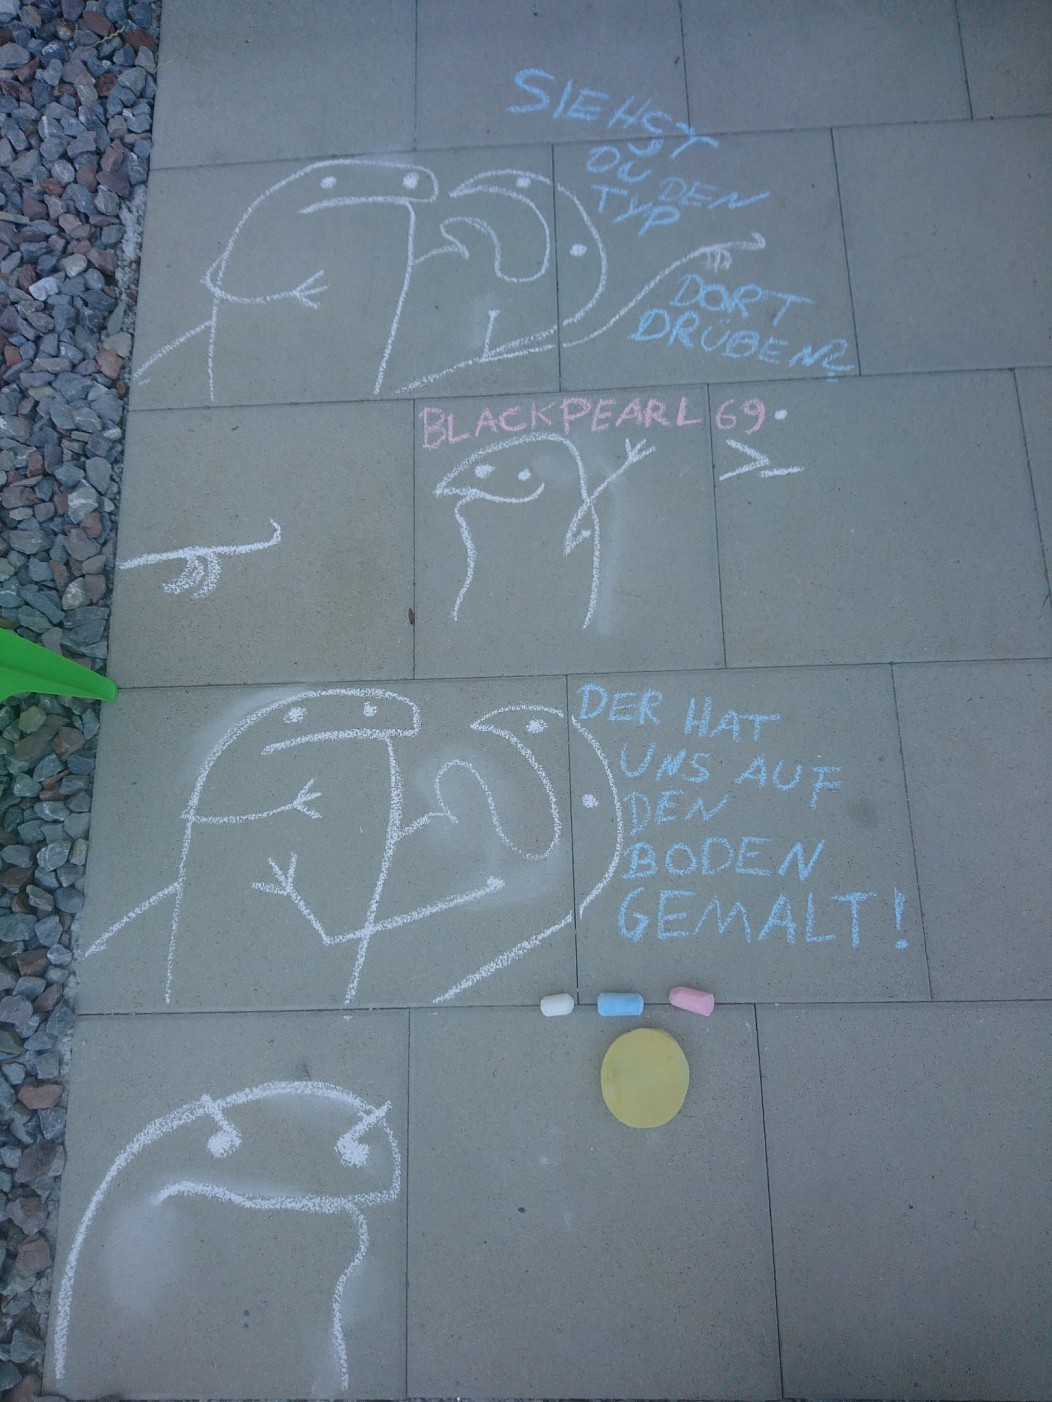 SIEHST
DU DEN
TYP
DORT
DRÜBEN?
BLACKPEARL 69
DER HAT
UNS AUF
DEN
BODEN
GEMALT!